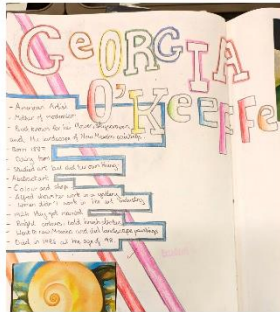 GEORGIA
O'KEEFFE
- American Artist
- Mother of modernism
- Best known for her flower, Skyscrapers
and, the landscape of New Mexico paintings.
- Born 1887
- Dairy farm
- Student art but did her own thing
- Abstraction
- Colour and shape
- women didn't work in the art industry
- Bright colours, bold brush strokes
- Went to New Mexico and did landscape paintings
- Died in 1986 at the age of 98